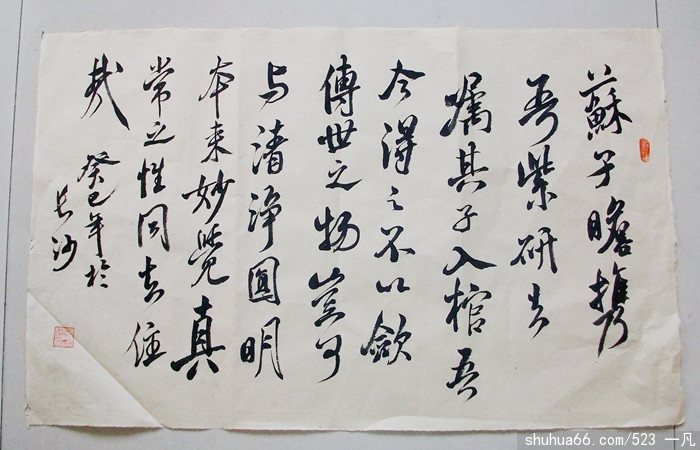 蘇子瞻携
吾紫研去
嘱其子入棺吾
今得之不以歛
傳世之物豈可
与清净圓明
本来妙覺真
常之性同去住
哉
癸巳年於
長沙
shuhua66.com/523 一凡